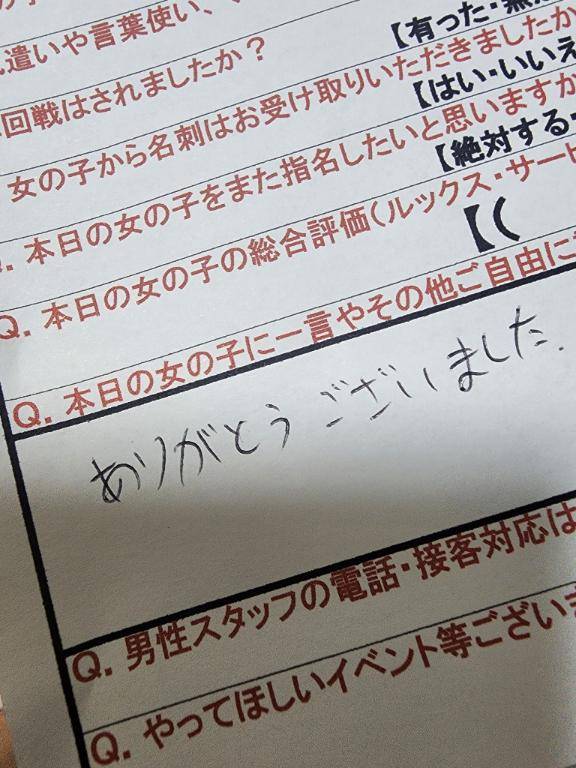 遣いや言葉使い、
【有った・無
回戦はされましたか?
【はい・いいえ
女の子から名刺はお受け取りいただきましたか
【絶対する・
本日の女の子をまた指名したいと思いますか
Q. 本日の女の子の総合評価(ルックス・サービ
【(
Q. 本日の女の子に一言やその他ご自由に
ありがとうございました.
Q. 男性スタッフの電話・接客対応は
Q. やってほしいイベント等ござい